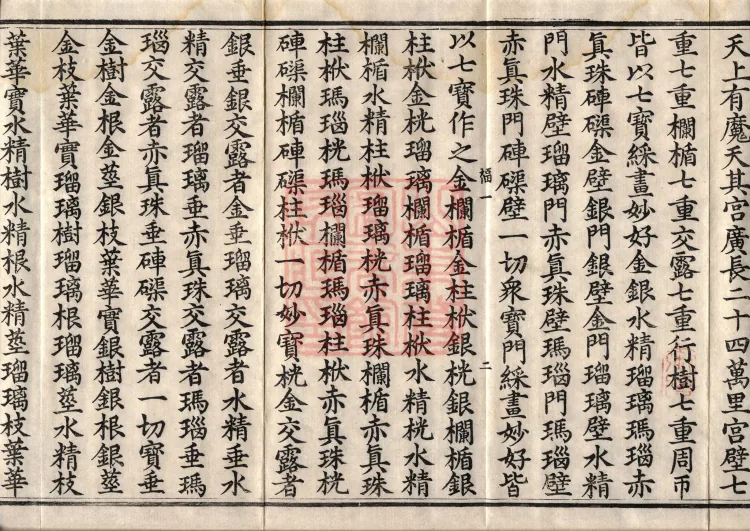 天上有魔天其宮廣長二十四萬里宮壁七
重七重欄楯七重交露七重行樹七重周帀
皆以七寶綵畫妙好金銀水精瑠璃瑪瑙赤
眞珠硨磲金壁銀門銀壁金門瑠璃壁水精
門水精壁瑠璃門赤眞珠壁瑪瑙門瑪瑙壁
赤眞珠門硨磲壁一切衆寶門綵畫妙好皆
福一 二
以七寶作之金欄楯金柱栿銀桄銀欄楯銀
柱栿金桄瑠璃欄楯瑠璃柱栿水精桄水精
欄楯水精柱栿瑠璃桄赤眞珠欄楯赤眞珠
柱栿瑪瑙桄瑪瑙欄楯瑪瑙柱栿赤眞珠桄
硨磲欄楯硨磲柱栿一切妙寶桄金交露者
銀垂銀交露者金垂瑠璃交露者水精垂水
精交露者瑠璃垂赤眞珠交露者瑪瑙垂瑪
瑙交露者赤眞珠垂硨磲交露者一切寶垂
金樹金根金莖銀枝葉華實銀樹銀根銀莖
金枝葉華實瑠璃樹瑠璃根瑠璃莖水精枝
葉華實水精樹水精根水精莖瑠璃枝葉華